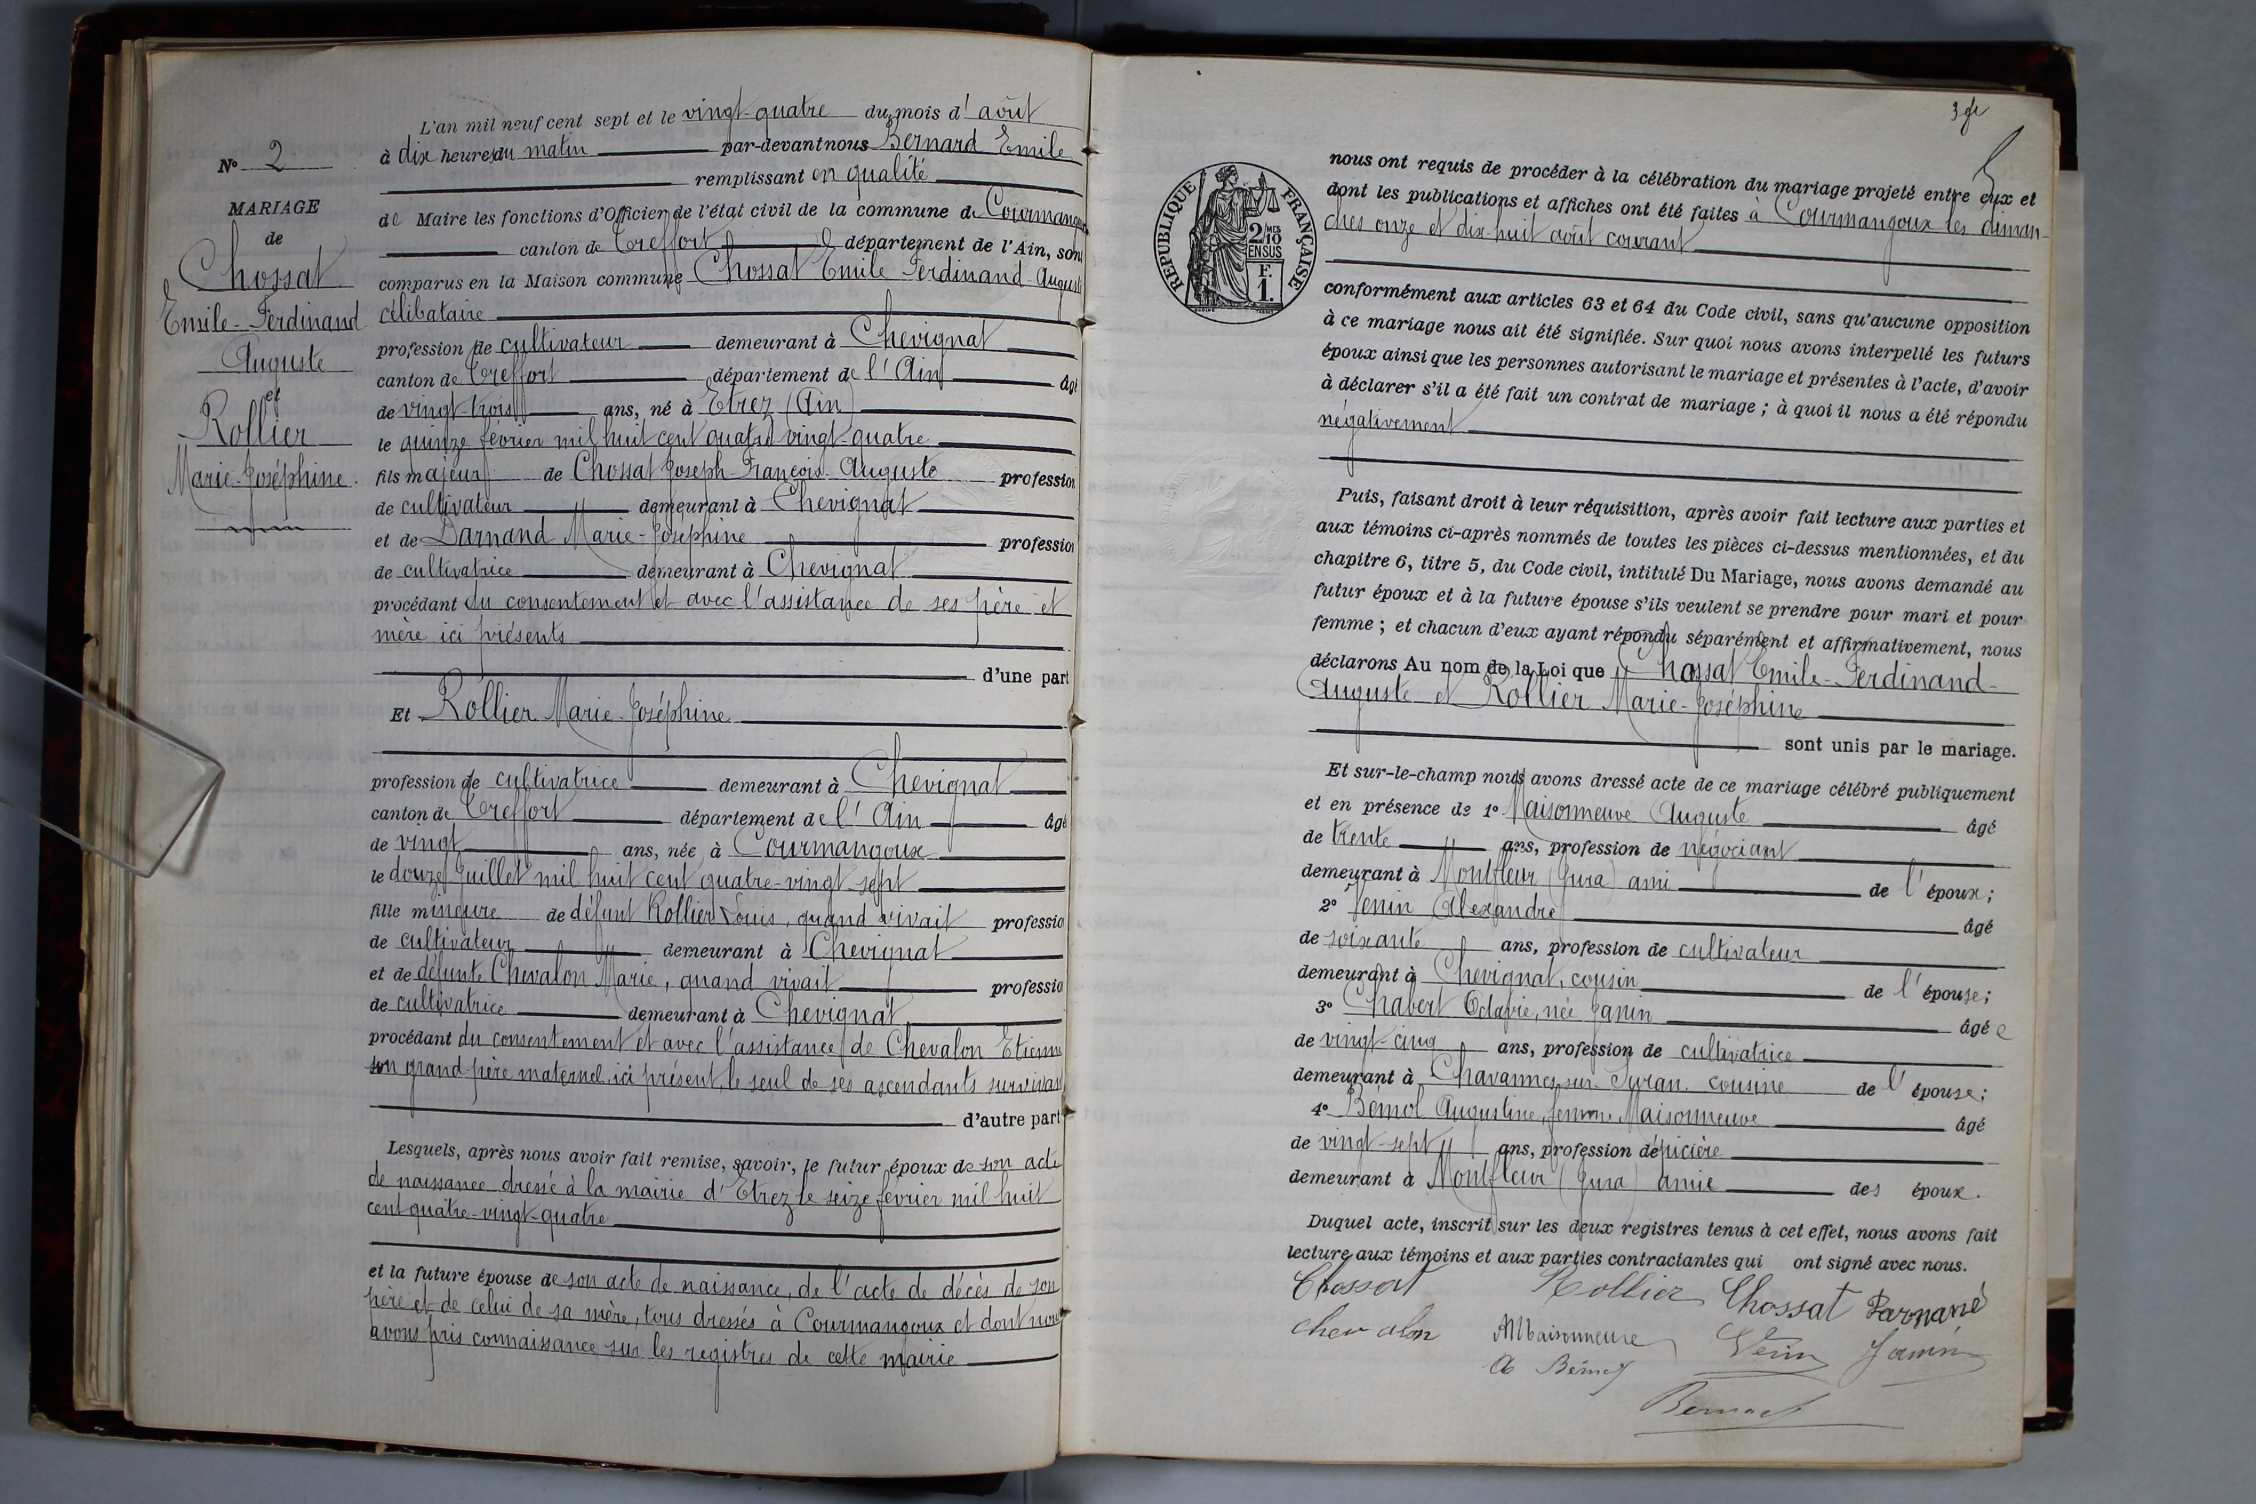 N° 2
MARIAGE
de
Chossat
Emile-Ferdinand
Auguste
et
Rollier
Marie-Joséphine.
L'an mil neuf cent sept et le vingt-quatre du mois d'août
à dix heures du matin par-devant nous Bernard Emile
remplissant en qualité
de Maire les fonctions d'Officier de l'état civil de la commune de Courmangoux
canton de Treffort département de l'Ain, sont
comparus en la Maison commune Chossat Emile Ferdinand-Auguste
célibataire
profession de cultivateur demeurant à Chevignat
canton de Treffort département de l'Ain âgé
de vingt-trois ans, né à Etrez (Ain)
le quinze février mil huit cent quatre vingt-quatre
fils majeur de Chossat Joseph-François-Auguste profession
de cultivateur demeurant à Chevignat
et de Darnand Marie-Joséphine profession
de cultivatrice demeurant à Chevignat
procédant du consentement et avec l'assistance de ses père et
mère ici présents
d'une part
Et Rollier Marie-Joséphine
profession de cultivatrice demeurant à Chevignat
canton de Treffort département de l'Ain âgé
de vingt ans, née à Courmangoux
le douze Juillet mil huit cent quatre-vingt-sept
fille mineure de défunt Rollier Louis, quand vivait professio
de cultivateur demeurant à Chevignat
et de défunte Chevalon Marie, quand vivait professio
de cultivatrice demeurant à Chevignat
procédant du consentement et avec l'assistance de Chevalon Etienne
son grand-père maternel, ici présent, le seul de ses ascendants survivant
d'autre part
Lesquels, après nous avoir fait remise, savoir, le futur époux de son acte
de naissance dressé à la mairie d'Etrez le seize février mil huit
cent quatre-vingt-quatre
et la future épouse de son acte de naissance, de l'acte de décès de son
père et de celui de sa mère, tous dressés à Courmangoux et dont nous
avons pris connaissance sur les registres de cette mairie
RÉPUBLIQUE FRANÇAISE
2/10 MES
EN SUS
F.
1.
nous ont requis de procéder à la célébration du mariage projeté entre eux et
dont les publications et affiches ont été faites à Courmangoux les diman-
ches onze et dix-huit août courant
conformément aux articles 63 et 64 du Code civil, sans qu'aucune opposition
à ce mariage nous ait été signifiée. Sur quoi nous avons interpellé les futurs
époux ainsi que les personnes autorisant le mariage et présentes à l'acte, d'avoir
à déclarer s'il a été fait un contrat de mariage ; à quoi il nous a été répondu
négativement
Puis, faisant droit à leur réquisition, après avoir fait lecture aux parties et
aux témoins ci-après nommés de toutes les pièces ci-dessus mentionnées, et du
chapitre 6, titre 5, du Code civil, intitulé Du Mariage, nous avons demandé au
futur époux et à la future épouse s'ils veulent se prendre pour mari et pour
femme ; et chacun d'eux ayant répondu séparément et affirmativement, nous
déclarons Au nom de la Loi que Chossat Emile-Ferdinand-
Auguste et Rollier Marie-Joséphine
sont unis par le mariage.
Et sur-le-champ nous avons dressé acte de ce mariage célébré publiquement
et en présence de 1° Maisonneuve Auguste âgé
de trente ans, profession de négociant
demeurant à Montfleur (Jura) ami de l'époux ;
2° Venin Alexandre âgé
de soixante ans, profession de cultivateur
demeurant à Chevignat, cousin de l'épouse ;
3° Chabert Octavie, née Janin âgée
de vingt-cinq ans, profession de cultivatrice
demeurant à Chavannes-sur-Suran, cousine de l'épouse ;
4° Bémol Augustine, femme Maisonneuve âgé
de vingt-sept ans, profession d'épicière
demeurant à Montfleur (Jura) amie des époux.
Duquel acte, inscrit sur les deux registres tenus à cet effet, nous avons fait
lecture aux témoins et aux parties contractantes qui ont signé avec nous.
Chossat Rollier Chossat
chevalon AMaisonneuve Venin Janin
Bernard